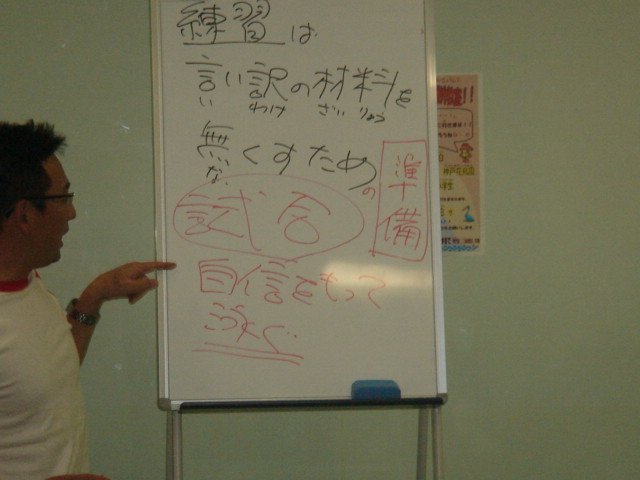 練習は
言い訳の材料を
い わけ ざいりょう
無くすための
な
準備
試合
自信をもって